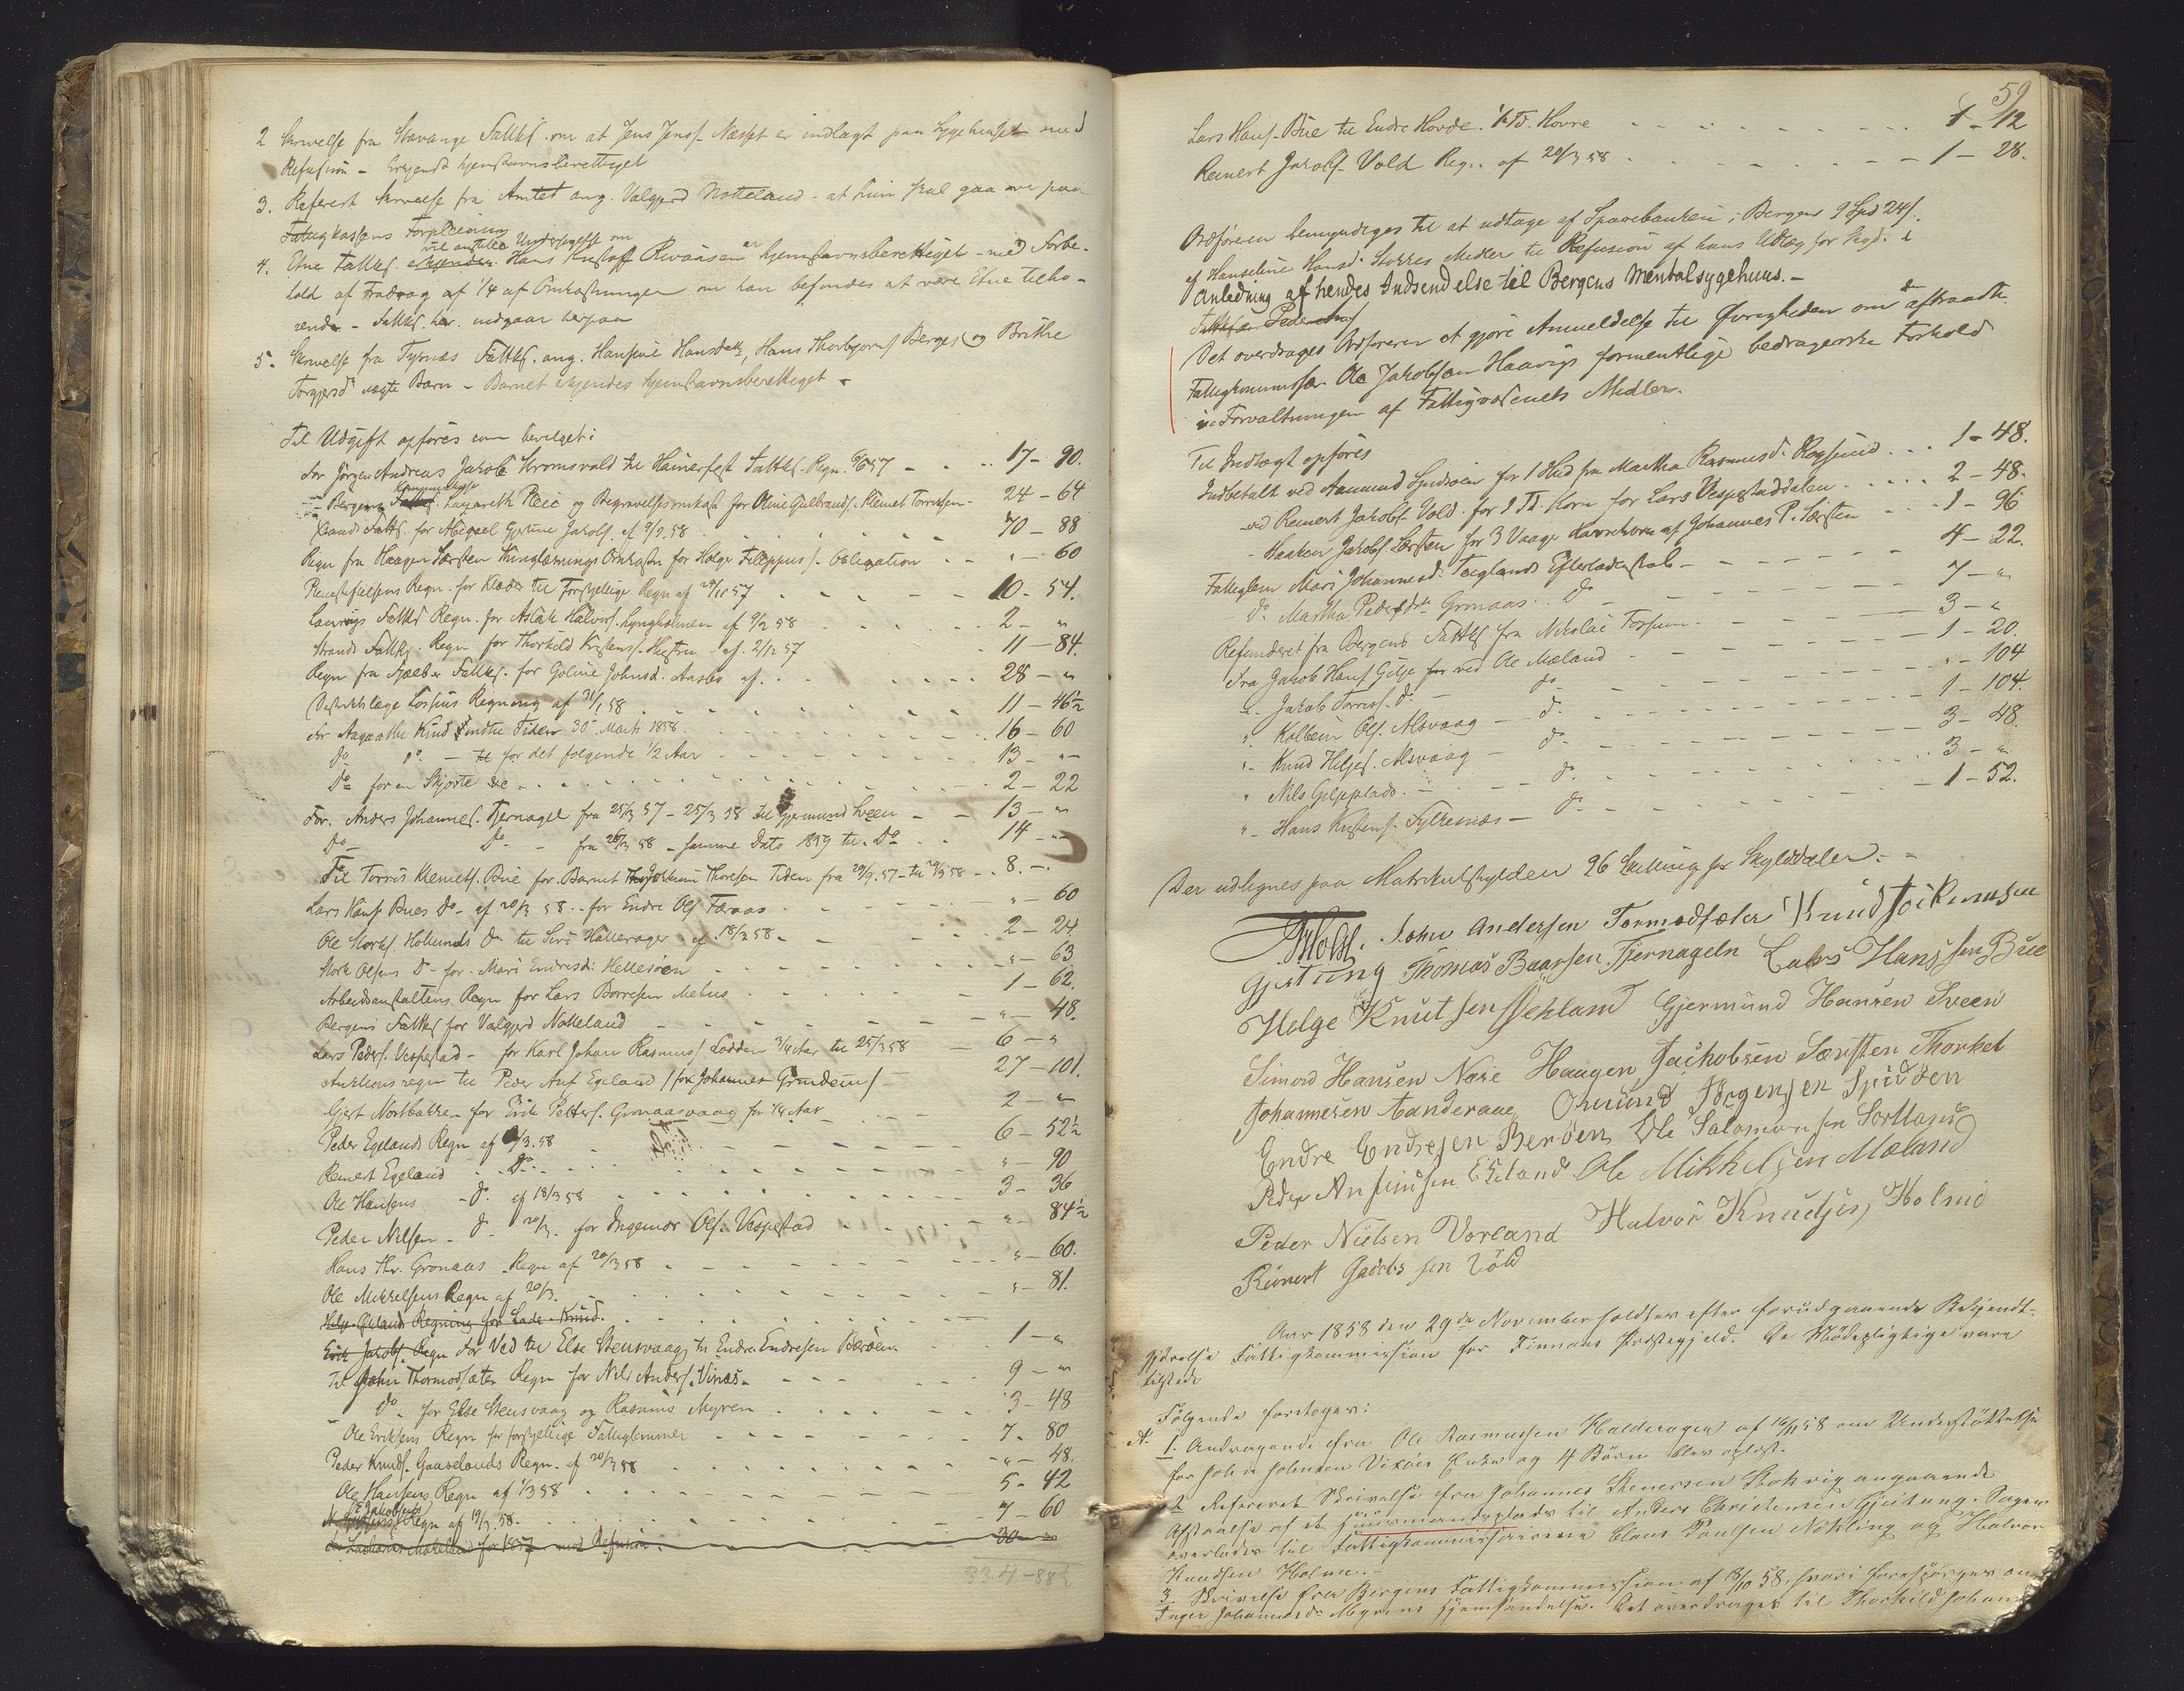 2 Skrivelse fra Stavange Fattks. om at Jens Jens. Næsset er indlagt paa Sygehuset med
Refusion – Erkjendt hjemstavnsberettiget
3. Referert Skrivelse fra Amtet ang. Valgjerd Notteland – at hun skal gaa over paa
Fattigkassens Forpleining
vil anstille Undersøgelse om
4. Etne Fattks. erkjender Hans Kristoff er hjemstavnsberettiget – med Forbe-
hold af Fradrag af 1/4 af Omkostninger om han befindes at være Etne tilhø-
rende – Fattks. her. indgaar herpaa
5. Skrivelse fra Tysnæs Fattks. ang. Hansine Hansdatr, Hans Thorbjørns. Berges og Brithe
Torgersd. uægte Barn – Barnet erkjendes hjemstavnsberettiget –
Til Udgift opføres som bevilget:
For Jørgen Andreas Jakobs. Stromsvold til Hamerfest Fattks. Regn. 57 – 17 – 90.
Bergens Kommunekasse Lazareth Pleie og Begravelsesomkost for Oline Gulbrands. Klemet Torrisen – 24 – 64
Sands Fattks. for Abigael Gjertine Jakobs. af 9/2 58 70 – 88
Regn fra Haagen Særsten Thinglæsnings Omkostn for Helge Filippus. Obligation " – 60
Regn. for Klæder til Forskjellige Regn af 29/11 57 10 – 54.
Fattks Regn. for Aslak Halvors. Lyngholmen af 9/2 58 2 – "
Strands Fattks. Regn for Thorkild Kristens. af. 2/12 57 11 – 84.
Regn fra Fjælber Fattks. for Goline Johnsd. Aasbø af. 28 – "
Distriktslæge Lossius Regning af 31/1 58 11 – 46½
for Aagaathe Knud Tiden 30 Marts 1858. 16 – 60
Do Do – for det følgende 1/2 Aar 13 – "
Do for en Skjorte 2 – 22
For. Anders Johannes. Tjernagel fra 25/3 57 – 25/3 58 til Gjermund Sveen – 13 – "
Do – Do – fra 25/3 58 – samme Dato 1859 til Do 14 – "
Til Torris Klemets. Bue for Barnet Thoresen Tiden fra 29/9. 57 – til 29/3 58 – 8. –
Lars Hans. Bues Do – af 20/3 58 – for Endre Ols. Færaas " – 60
Ole Storks. Holunds Do til Siri Hallerager af 18/3 58 – 2 – 24
Stork Olsens Do – for Mari Endresd. Hellesøen " – 63
Arbeidsanstaltens Regn for Lars Børresen Mehus 1 – 62.
Bergens Fattks for Valgjerd Notteland " – 48.
Lars Peders. Vespestad – for Karl Johan Rasmus. Lodden 3/4 Aar til 25/3 58 6 – "
Auktions regn til Peder Ans. Egeland /for Johannes Grindeim/ 27 – 101.
Gjert Nordbakken for Erik Petters. Gronaasvaag for 1/4 Aar 2 – "
Peder Egelands Regn af /3. 58 6 – 52½
Reinert Egeland Do. " – 90
Ole Hansens – Do. af 18/3 58 3 – 36
Peder Nilsen – Do 20/3. for Ingemor Ols. Vespestad " – 84½
Hans Kr. Gronaas Regn af 20/3 58 " – 60.
Ole Mikkelsens Regn af 20/3. " – 81.
Helge Gelands Regning for Lade Knud.
Erik Jakobs. Regn for Ved til Else Stensvaag til Endre Endresen Berøen 1 – "
Til John Thormodsæter Regn for Nils Anders. Vinæs – 9 – "
Do. for Else Stensvaag og Rasmus Myren 3 – 48
Ole Eriksens Regn for forskjellige Fattiglemmer 7 – 80
Peder Knuds. Gaaselands Regn. af 20/3 58 " – 48.
Ole Hansens Regn af 1/3 58 5 – 42
E Jakobsens Regn af 19/3. 58. 7 – 60
for 1857 med Refusion. 30 – "
334 – 88½
59
Lars Hans. Bue til Endre Hovde. 1/2 Td. Havre 1 – 12
Reinert Jakobs. Vold Regn. af 20/3 58 1 – 28.
Ordføreren bemyndiges til at udtage af Sparebanken i Bergen 9 Spd 24 s.
af Hanseline Hansd. Stokkes Midler til Refusion af hans Udlæg for Skyds i
Anledning af hendes Indsendelse til Bergens Mentalsygehuus. –
Det overdrages Ordføreren at gjøre Anmeldelse til Øvrigheden om afstraadte
Fattigkommissær Ole Jakobsen Haavigs formentlige bedragerske Forhold
i Forvaltningen af Fattigvæsenets Midler.
Til Indtægt opføres
Indbetalt ved Aamund Spidsøen for 1 Hud fra Martha Rasmusd. Røgsund 1 – 48.
ved Reinert Jakobs. Vold for 1 Td. Korn for Lars Vespestaddalen 2 – 48.
– Haaken Jakobs Særsten for 3 Vaage Havrekorn af Johannes P. Særsten 1 – 96
Fattiglem Mari Johannesd. Tveglands Efterladenskab – 4 – 22.
do. Martha Pedersdtr Gronaas Do 7 – "
Refunderet fra Bergens Fattks fra Nikolai Torsum 3 – "
Fra Jacob Hans. Gilje ved Ole Mæland 1 – 20.
" – Jakob Torress. Do – do " – 104
" Kolbein Ols. Alsvaag – do 1 – 104.
" – Knud Helges. Alsvaag – do 3 – 48.
" Nils – do 3 – "
" – Hans Kristens. Fylkesnæs – do 1 – 52.
Der udlignes paa Matrikulskylden 96 Skilling pr Skylddaler. –
John Andersen Tormodsæter Knud Joakimsen
Gjeitung Thomas Baarsen Tjernageln Lars Hanssen Bue
Helge Knutsen Økland Gjermund Hansen Sveen
Simon Hansen Nore Haagen Jachobsen Særsten Thorkel
Johannesen Aanderaae, Omund Jørgensen Spidsøen
Endre Endresen Berøen Ole Salomonsen Sortland
Peder Ansteinsen Egeland Ole Mikkelsen Mæland
Peder Nielsen Vorland Halvor Knudsen Holme
Reinert Jacobsen Vold
Aar 1858 den 29de November holdtes efter forudgaaende Bekjendt-
gjørelse Fattigkommission for Finnaas Præstegjeld. De Mødepligtige vare
tilstede
Følgende foretoges:
A. 1. Andragende fra Ole Rasmussen Halderagen af 16/11 58 om Understøttelse
for John Johnsen Vikøens Enke og 4 Børn blev oplæst.
2. Refereret Skrivelse fra Johannes Stenersen Stokvig angaaende
Afstaaelse af et Huusmandsplads til Anders Christensen Gjeitung. Sagen
overlades til Fattigkommissærerne Claus Poulsen Nøkling og Halvor
Knudsen Holme. –
3. Skrivelse fra Bergens Fattigkommission af 18/10 58, hvori forespørges om
Inger Johannesd. Myrens Hjemsendelse. Det overdrages til Thorkild Johan